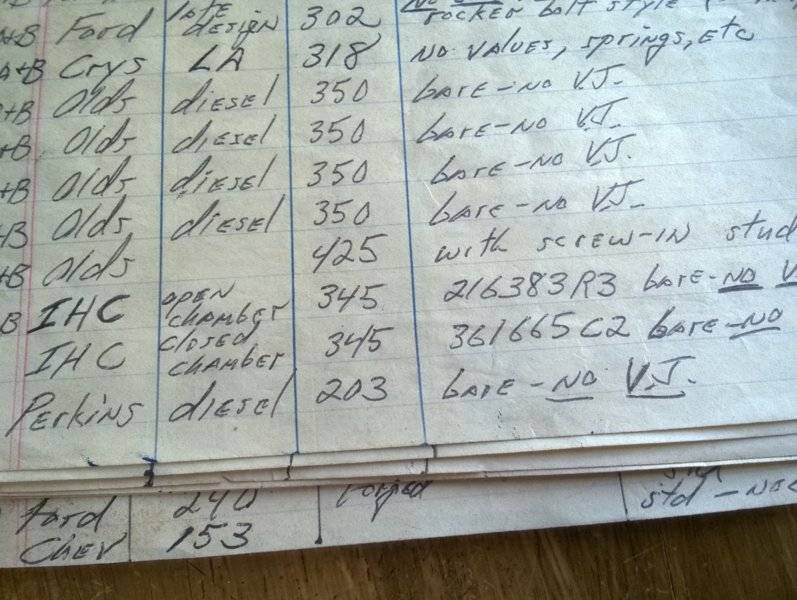 A+B Ford late design 302 rocker bolt style
A+B Crys LA 318 NO VALVES, springs, etc
A+B Olds diesel 350 bare-NO V.J.
+B Olds diesel 350 bare-NO V.J.
+B Olds diesel 350 bare-NO V.J.
+B Olds diesel 350 bare-NO V.J.
+B Olds 425 with screw-in stud
B IHC open chamber 345 216383R3 bare-NO V
IHC closed chamber 345 361665C2 bare-NO
Perkins diesel 203 bare-NO V.J.
Ford 240 std-
Chev 153